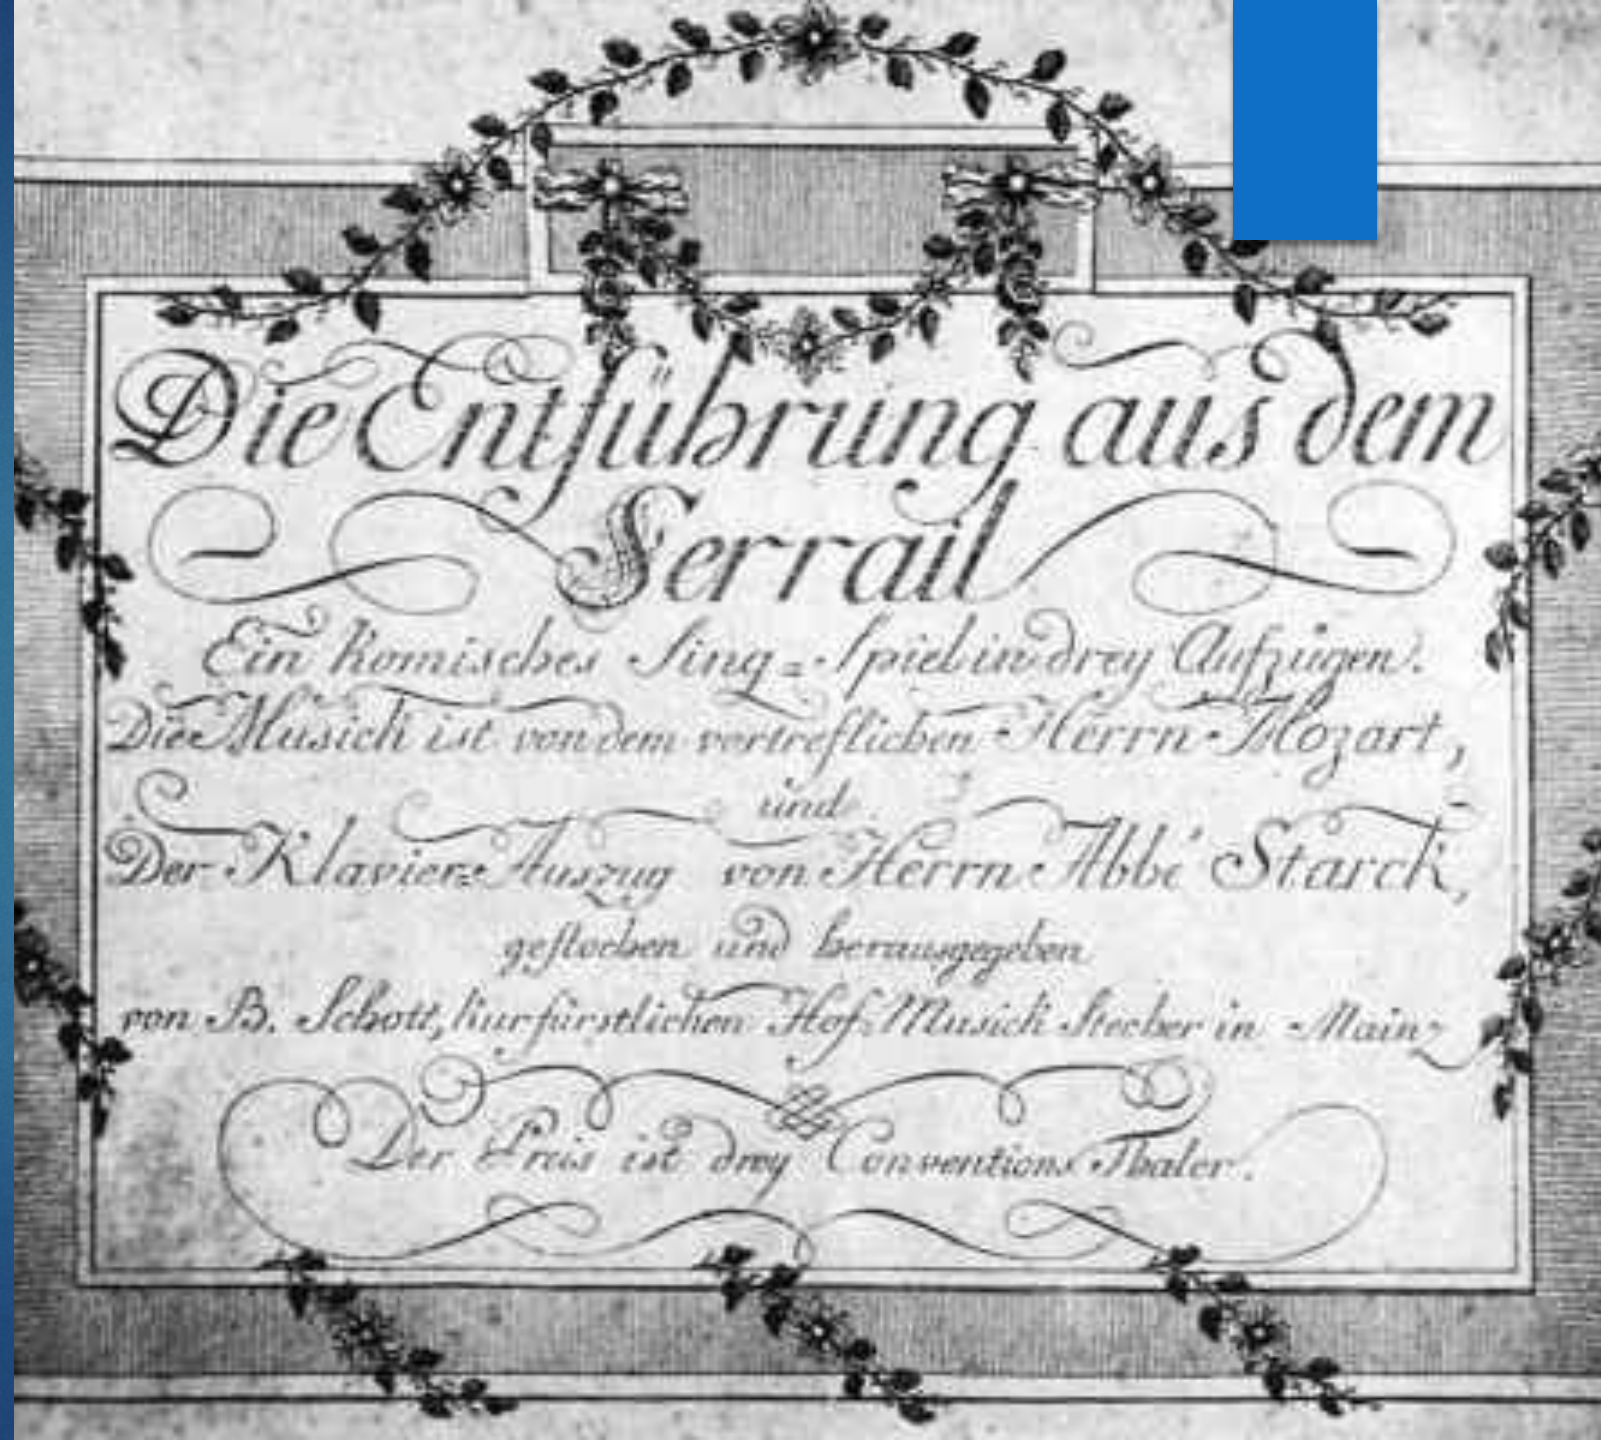 Die Entführung aus dem
Serrail
Ein komisches Sing=Spiel in drey Aufzügen.
Die Musick ist von dem vortreflichen Herrn Mozart,
und
Der Klavier=Auszug von Herrn Abbé Starck,
gestochen und herausgegeben
von B. Schott, kurfürstlichen Hof=Musick Stecher in Mainz
Der Preis ist drey Conventions Thaler.